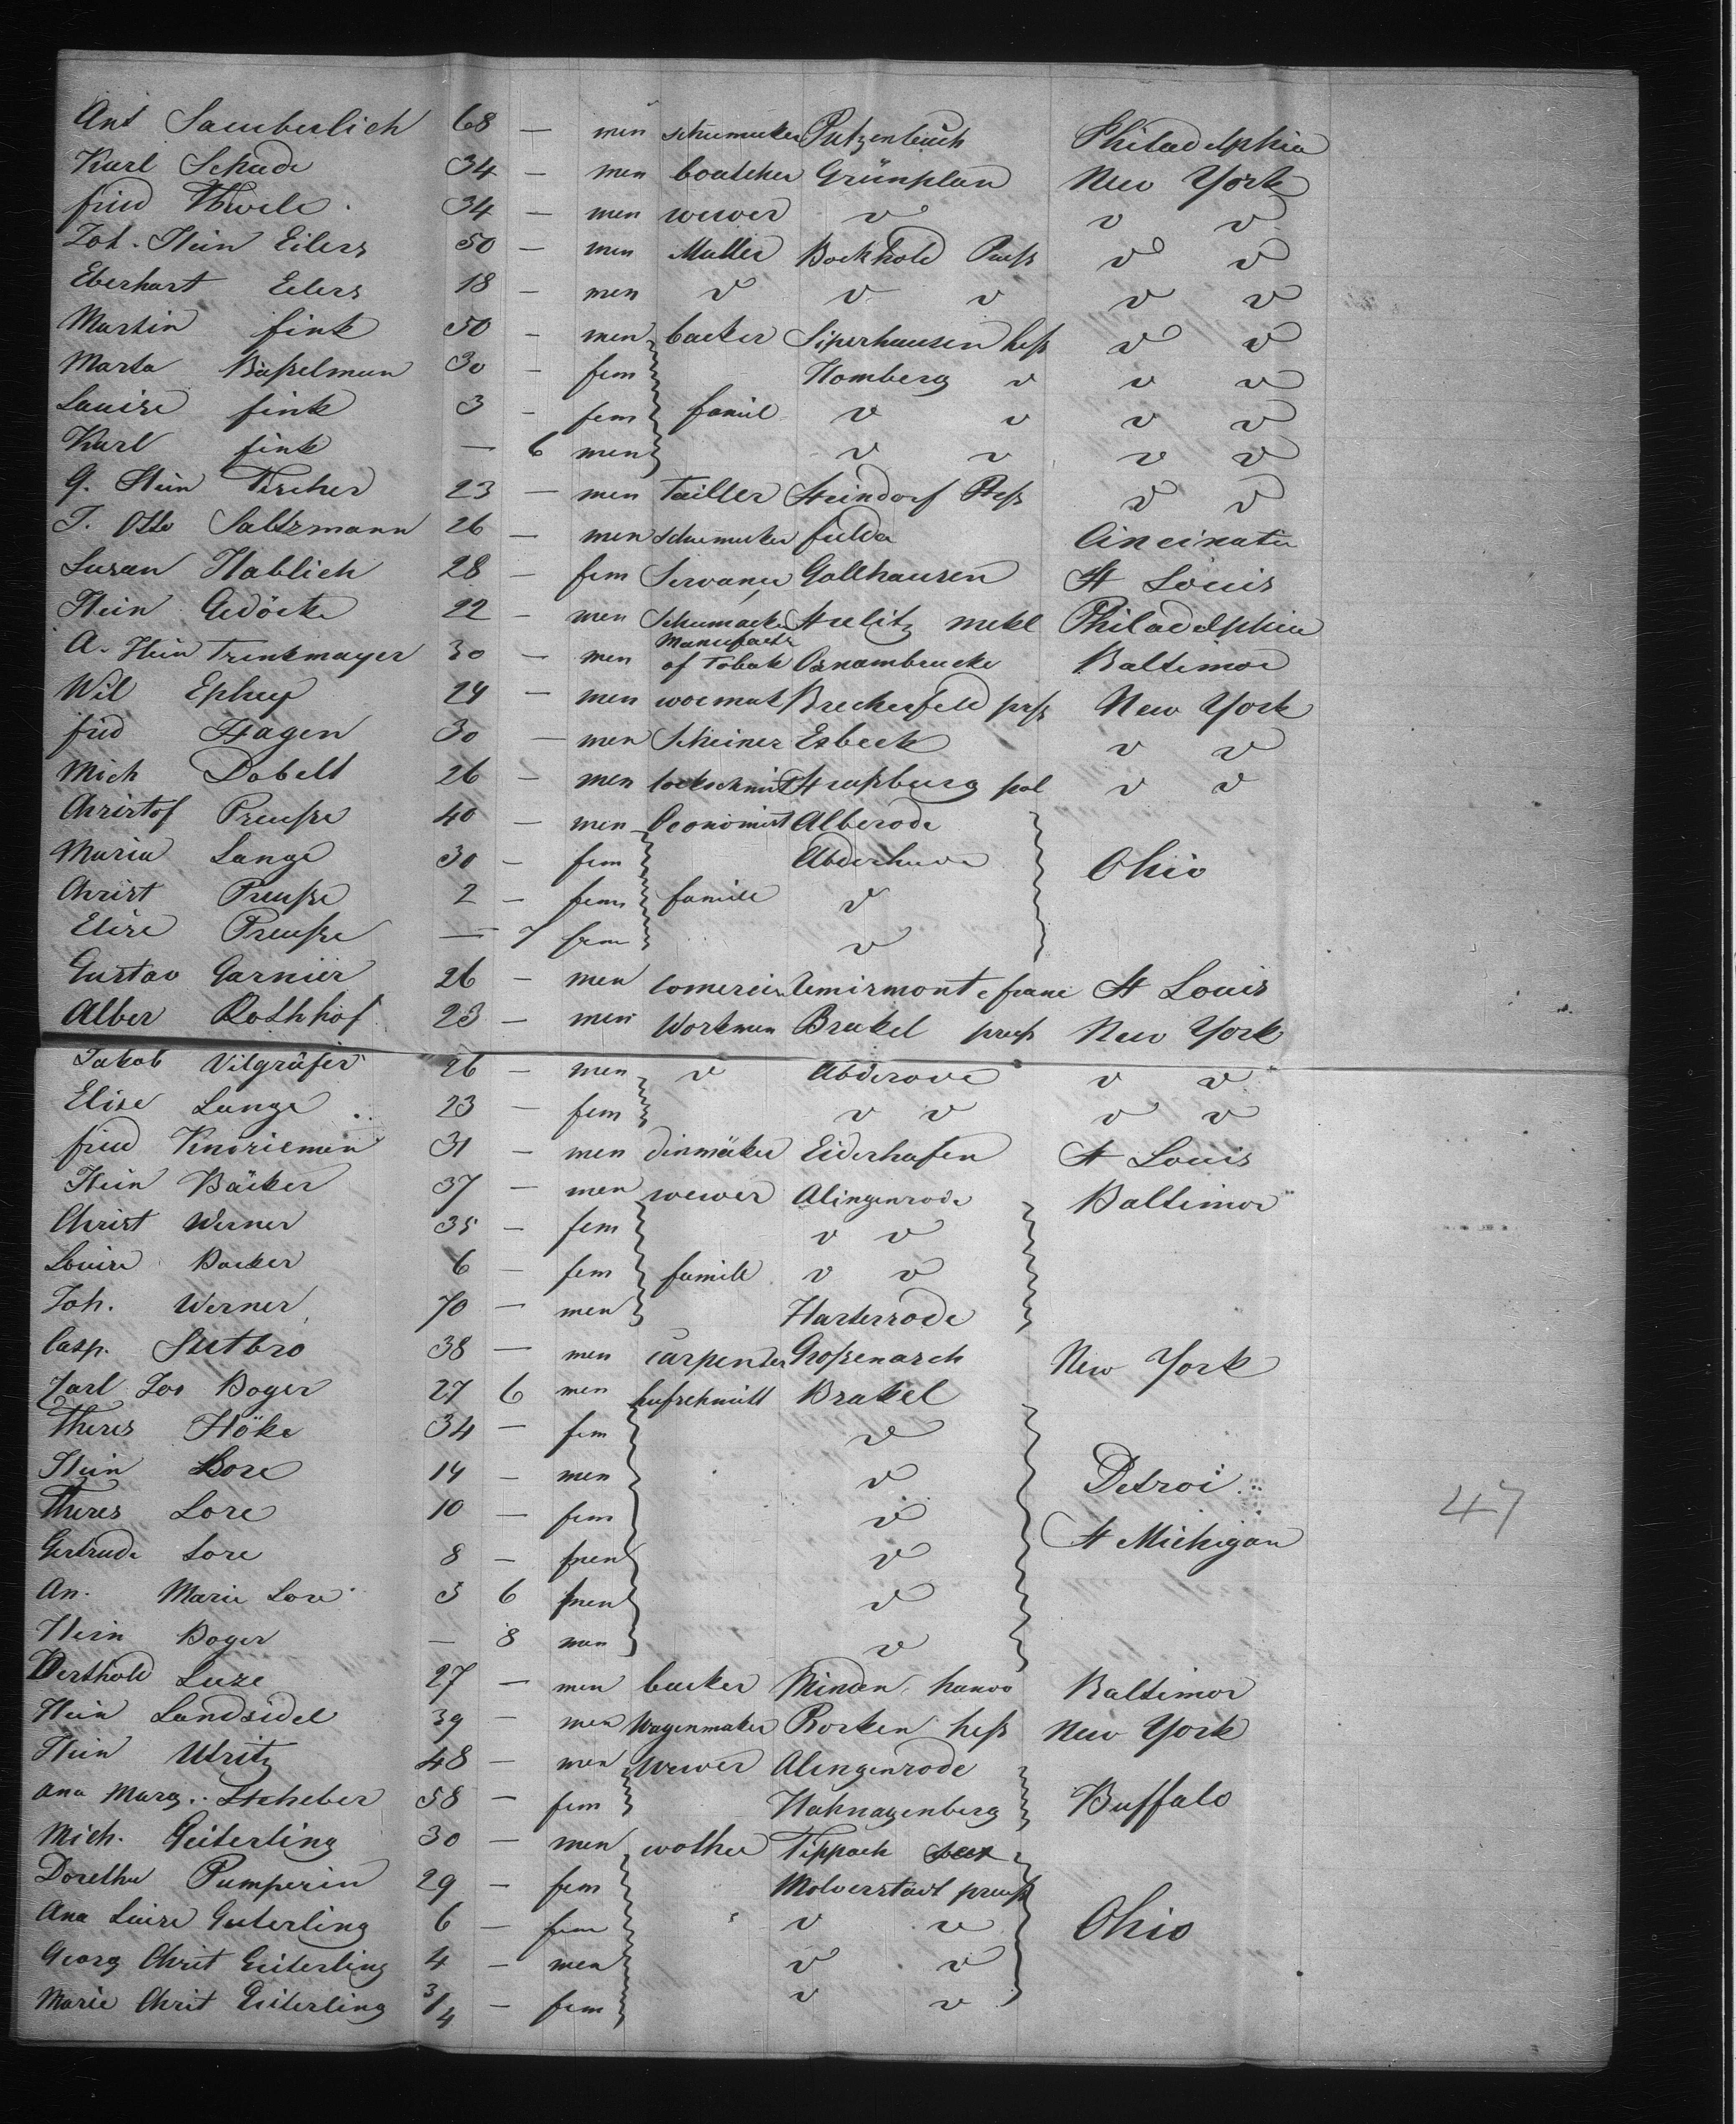 Ant Sauberlich 68 — men schumaker Putzenbuch Philadelphia
Karl Schade 34 — men boatcher Grünplan New York
fried Thwele 34 — men wewer v v v
Joh. Hein Eilers 50 — men Muller Bockhold Preß v v
Eberhart Eilers 18 — men v v v v v
Martin fink 50 — men backer Siperhausen heß v v
Marta Baßelman 30 — fem Homberg v v v
Lauise fink 3 — fem famil v v v v
Karl fink — 6 men v v v v
G. Hein Fischer 23 — men Tailler Steindorf Preß v v
T. Otto Saltzmann 26 — men Schumacker fulda Cincinati
Susan Hablich 28 — fem Servant Gollhausen St Louis
Hein Gedöcke 22 — men Schumacker Strelitz mekl Philadelphia
A. Hein Trenkmayer 30 — men Manufactr of Tobak Osnambrucke Baltimor
Wil Ephey 24 — men Breckerfeld prß New York
frid Hagen 30 — men Scheiner Esbeck v v
Mich Dobelt 26 — men lockschmit Straßburg pol v v
Christof Preuße 40 — men Oeconomist Alberode
Maria Lange 30 — fem Abderhave Ohio
Christ Preuße 2 — fem famile v
Elise Preuße — 7 fem v
Gustav Garnier 26 — men comercien Remirmont e franc St Louis
Alber Rothhof 23 — men Workman Brakel preuß New York
Jakob Vilgräfer 26 — men v Abderode v v
Elise Lange 23 — fem v v v v
fried Knorieman 31 — men dinmäker Eiderhafen St Louis
Hein Bäcker 37 — men wewer Alingenrode Baltimor
Christ Werner 35 — fem v v
Louise Backer 6 — fem famill v v
Joh. Werner 70 — men Harterrode
Casp. Sutbro 38 — men carpenter Großenasch New York
Carl Jos Boger 27 6 men hufschmitt Brakel
Theres Höke 34 — fem v
Hein Lore 14 — men v Detroi
Theres Lore 10 — fem v
Gertrude Lore 8 — fmen v St Michigan
An. Marie Lore 3 6 fmen v
Hein Boger — 8 men v
Berthold Luze 27 — men backer Minden hanov Baltimor
Hein Landsidel 39 — men Wagenmaker Borken heß New York
Hein Ulritz 48 — men wewer Alengenrode
Ana Marg. Stcheber 58 — fem Hahnagenberg Buffalo
Mich. Geiterling 30 — men wother Tippach
Dorethe Pumperin 29 — fem Molverstadt preuß
Ana Luise Geiterling 6 — fem v v Ohio
Georg Christ Geiterling 4 — men v v
Marie Christ Geiterling 3/4 — fem v v
47